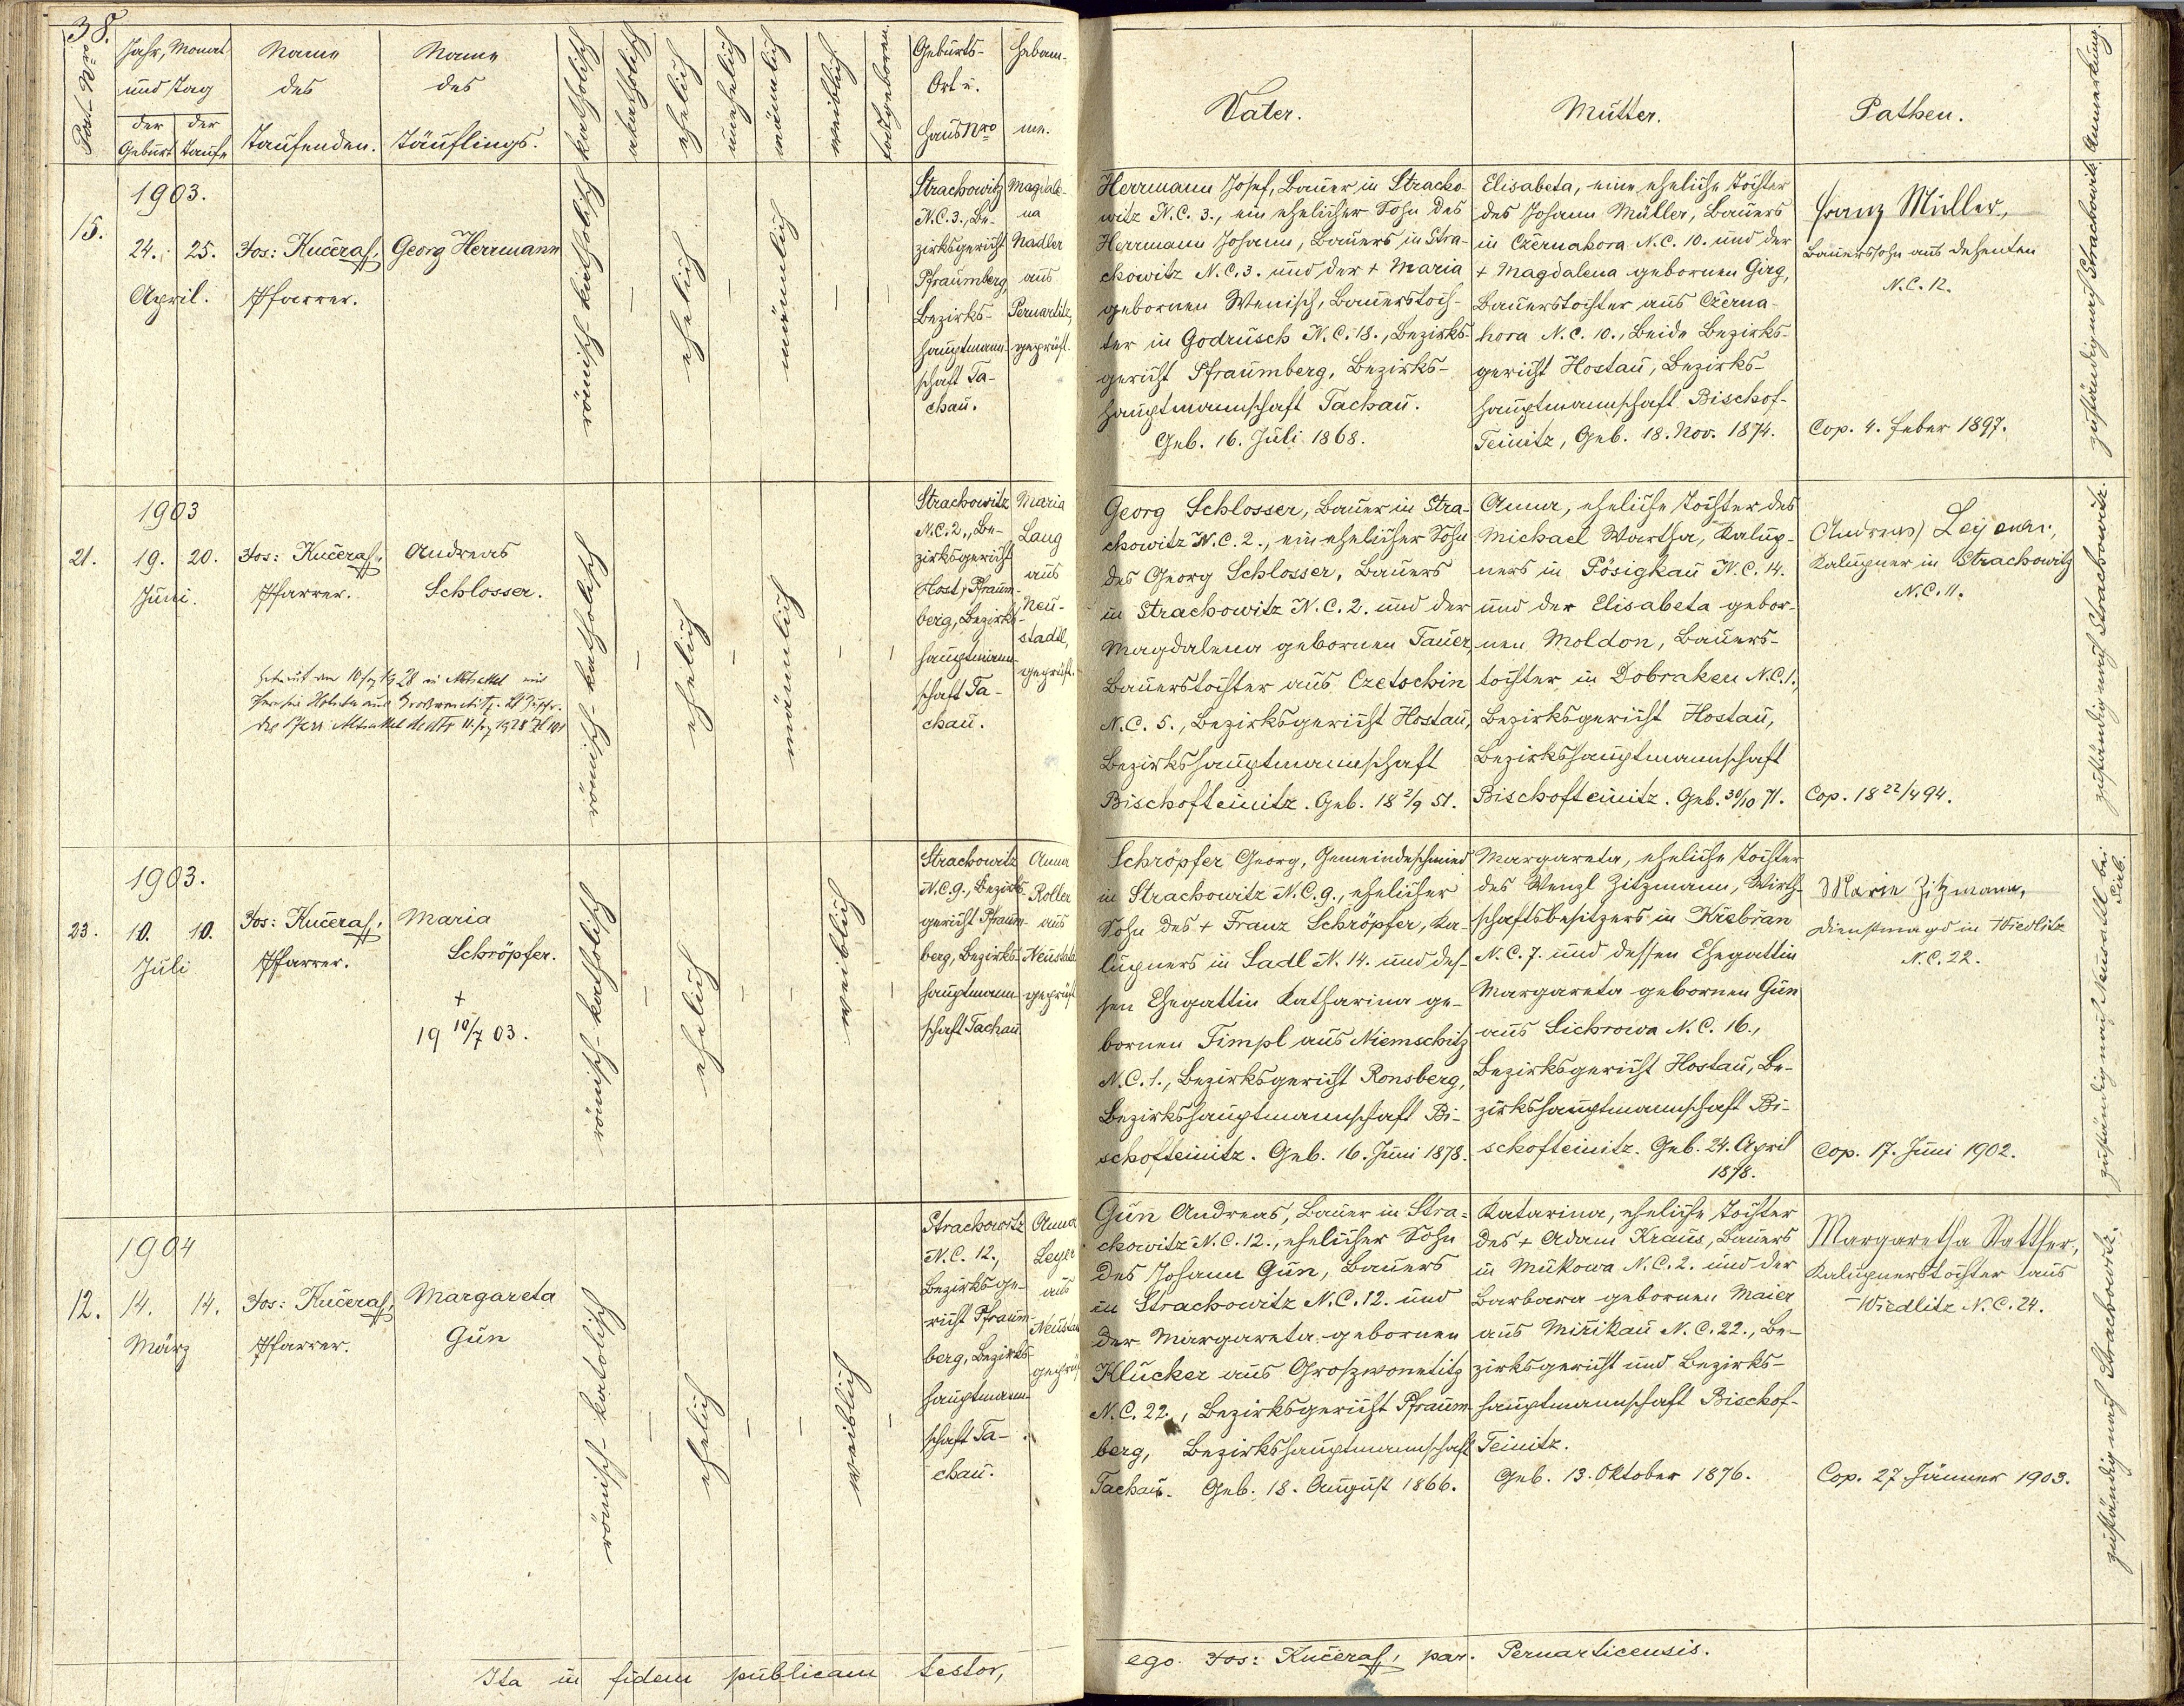 38.
Post-Nro
Jahr, Monat
und Tag
der Geburt
der Taufe
Name
des
Taufenden.
Name
des
Täuflings.
katholisch
akatholisch
ehelich
unehelich
männlich
weiblich
todtgeboren.
Geburts-
Ort u.
Haus Nro
Hebam-
me.
Vater.
Mutter.
Pathen.
Anmerkung.
15.
1903.
24. 25.
April.
Jos: Kučera,
Pfarrer.
Georg Herrmann
römisch-katholisch
–
ehelich
–
männlich
–
–
Strachowitz
N.C. 3., Be-
zirksgericht
Pfraumberg,
Bezirks-
hauptmann-
schaft Ta-
chau.
Magdale-
na
Nadler
aus
Pernartitz,
geprüft.
Herrmann Josef, Bauer in Stracho-
witz N.C. 3., ein ehelicher Sohn des
Herrmann Johann, Bauers in Stra-
chowitz N.C. 3. und der + Maria
gebornen Wenisch, Bauerstoch-
ter in Godrusch N.C. 18., Bezirks-
gericht Pfraumberg, Bezirks-
hauptmannschaft Tachau.
Geb. 16. Juli 1868.
Elisabeta, eine eheliche Tochter
des Johann Müller, Bauers
in Czernahora N.C. 10. und der
+ Magdalena gebornen Girg,
Bauerstochter aus Czerna-
hora N.C. 10., Beide Bezirks-
gericht Hostau, Bezirks-
hauptmannschaft Bischof-
Teinitz, Geb. 18. Nov. 1874.
Franz Müller,
Bauerssohn aus Dehenten
N.C. 12.
Cop. 4. Feber 1897.
zuständig nach Strachowitz.
21.
1903
19. 20.
Juni.
Jos: Kučera,
Pfarrer.
Andreas
Schlosser.
römisch-katholisch
–
ehelich
–
männlich
–
–
Strachowitz
N.C. 2., Be-
zirksgericht
Host, Pfraum-
berg, Bezirks-
hauptmann-
schaft Ta-
chau.
Maria
Lang
aus
Neu-
stadtl,
geprüft.
Georg Schlosser, Bauer in Stra-
chowitz N.C. 2., ein ehelicher Sohn
des Georg Schlosser, Bauers
in Strachowitz N.C. 2. und der
Magdalena gebornen Tauer,
Bauerstochter aus Czetschin
N.C. 5., Bezirksgericht Hostau,
Bezirkshauptmannschaft
Bischofteinitz. Geb. 18 2/9 51.
Anna, eheliche Tochter des
Michael Wartha, Kalup-
ners in Pösigkau N.C. 14.
und der Elisabeta gebor-
nen Moldon, Bauers-
tochter in Dobraken N.C. 1.,
Bezirksgericht Hostau,
Bezirkshauptmannschaft
Bischofteinitz. Geb. 30/10 71.
Kalupner in Strachowitz
N.C. 11.
Cop. 18 22/4 94.
zuständig nach Strachowitz.
23.
1903.
10. 10.
Juli
Jos: Kučera,
Pfarrer.
Maria
Schröpfer.
+
19 10/7 03.
römisch-katholisch
–
ehelich
–
–
weiblich
–
Strachowitz
N.C. 9., Bezirks-
gericht Pfraum-
berg, Bezirks-
hauptmann-
schaft Tachau
Anna
Roller
aus
Neustadtl
geprüft
Schröpfer Georg, Gemeindeschmied
in Strachowitz N.C. 9., ehelicher
Sohn des + Franz Schröpfer, Ka-
lupners in Sadl N. 14. und des-
sen Ehegattin Katharina ge-
bornen Timpl aus Niemschitz
N.C. 1., Bezirksgericht Ronsberg,
Bezirkshauptmannschaft Bi-
schofteinitz. Geb. 16. Juni 1878.
Margareta, eheliche Tochter
des Wenzl Zitzmann, Wirth-
schaftsbesitzers in Křebřan
N.C. 7. und dessen Ehegattin
Margareta gebornen Gün
aus Sichrowa N.C. 16.,
Bezirksgericht Hostau, Be-
zirkshauptmannschaft Bi-
schofteinitz. Geb. 24. April
1878.
Marie Zitzmann,
Dienstmagd in Wiedlitz
N.C. 22.
Cop. 17. Juni 1902.
zuständig nach Neustadtl bei
12.
1904
14. 14.
März
Jos: Kučera,
Pfarrer.
Margareta
Gün
römisch-katolisch
–
ehelich
–
–
weiblich
–
Strachowitz
N.C. 12.,
Bezirksge-
richt Pfraum-
berg, Bezirks-
hauptmann-
schaft Ta-
chau.
Anna
Leyer
aus
Neustadtl
geprüft
Gün Andreas, Bauer in Stra-
chowitz N.C. 12., ehelicher Sohn
des Johann Gün, Bauers
in Strachowitz N.C. 12. und
der Margareta gebornen
Klucker aus Groszwonetitz
N.C. 22., Bezirksgericht Pfraum-
berg, Bezirkshauptmannschaft
Tachau. Geb. 18. August 1866.
Katarina, eheliche Tochter
des + Adam Kraus, Bauers
in Mukowa N.C. 2. und der
Barbara gebornen Maier
aus Miřikau N.C. 22., Be-
zirksgericht und Bezirks-
hauptmannschaft Bischof-
Teinitz.
Geb. 13. Oktober 1876.
Margaretha Statther,
Kalupnerstochter aus
Wiedlitz N.C. 24.
Cop. 27. Jänner 1903.
zuständig nach Strachowitz.
Ita in fidem publicam testor,
ego Jos: Kučera, par. Pernarticensis.